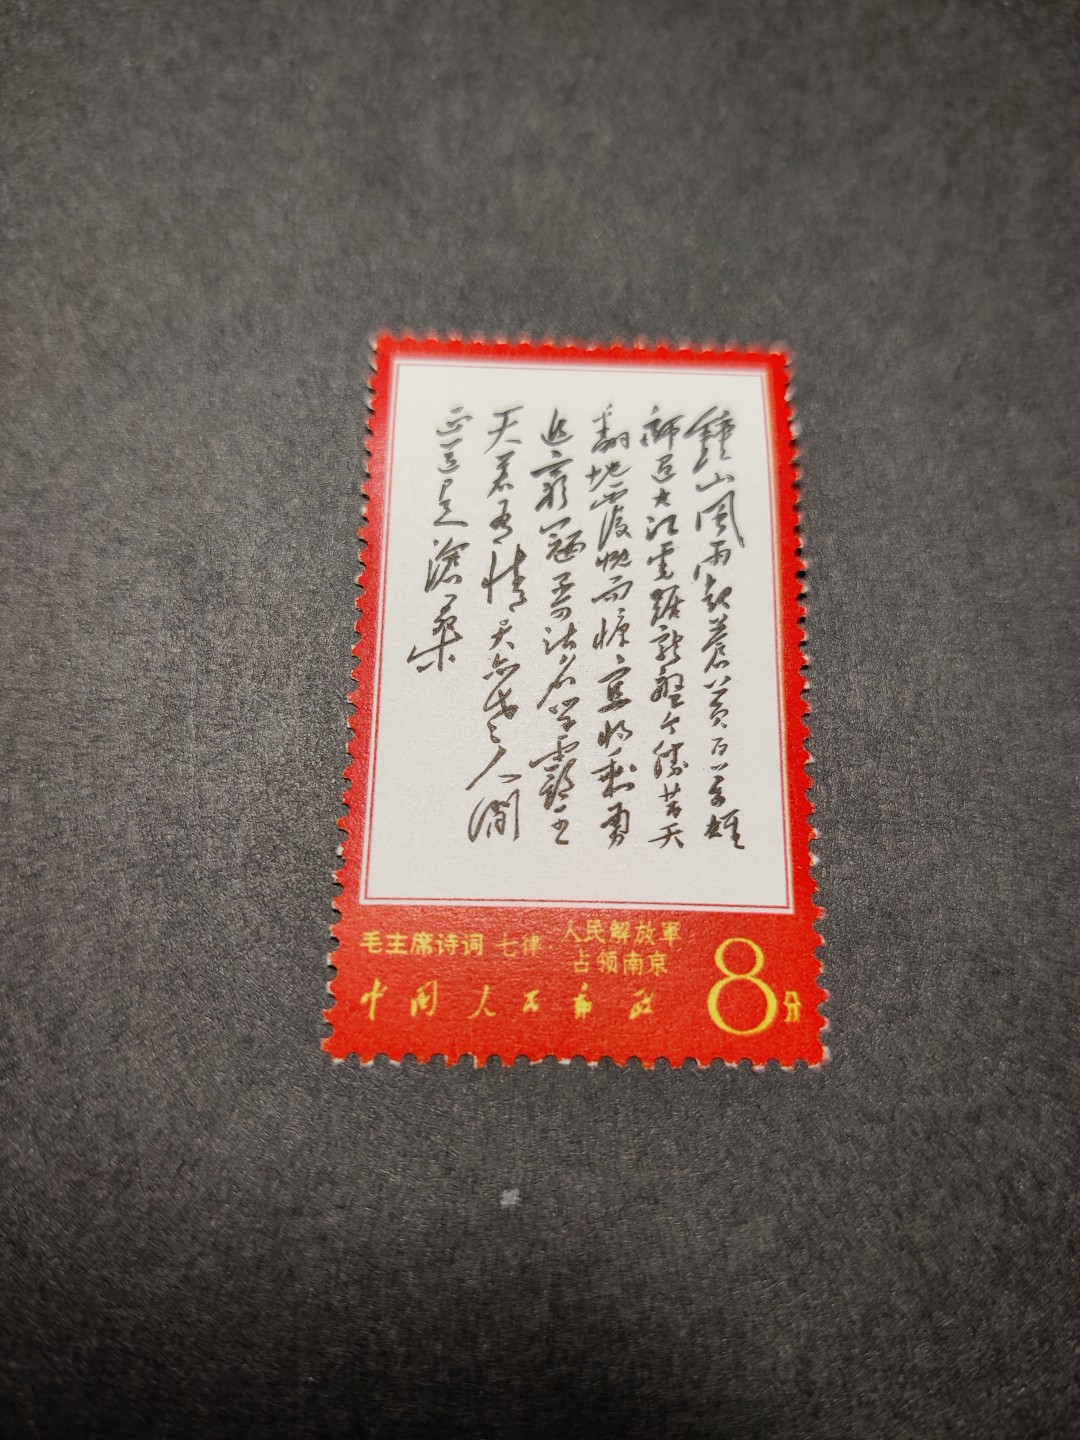 鐘山風雨起蒼黄百万雄
師過大江虎踞龍盤今勝昔天
翻地覆慨而慷宜將剩勇
追窮寇不可沽名學霸王
天若有情天亦老人間
正道是滄桑
毛主席诗词 七律·人民解放軍
占领南京
中国人民邮政
8分